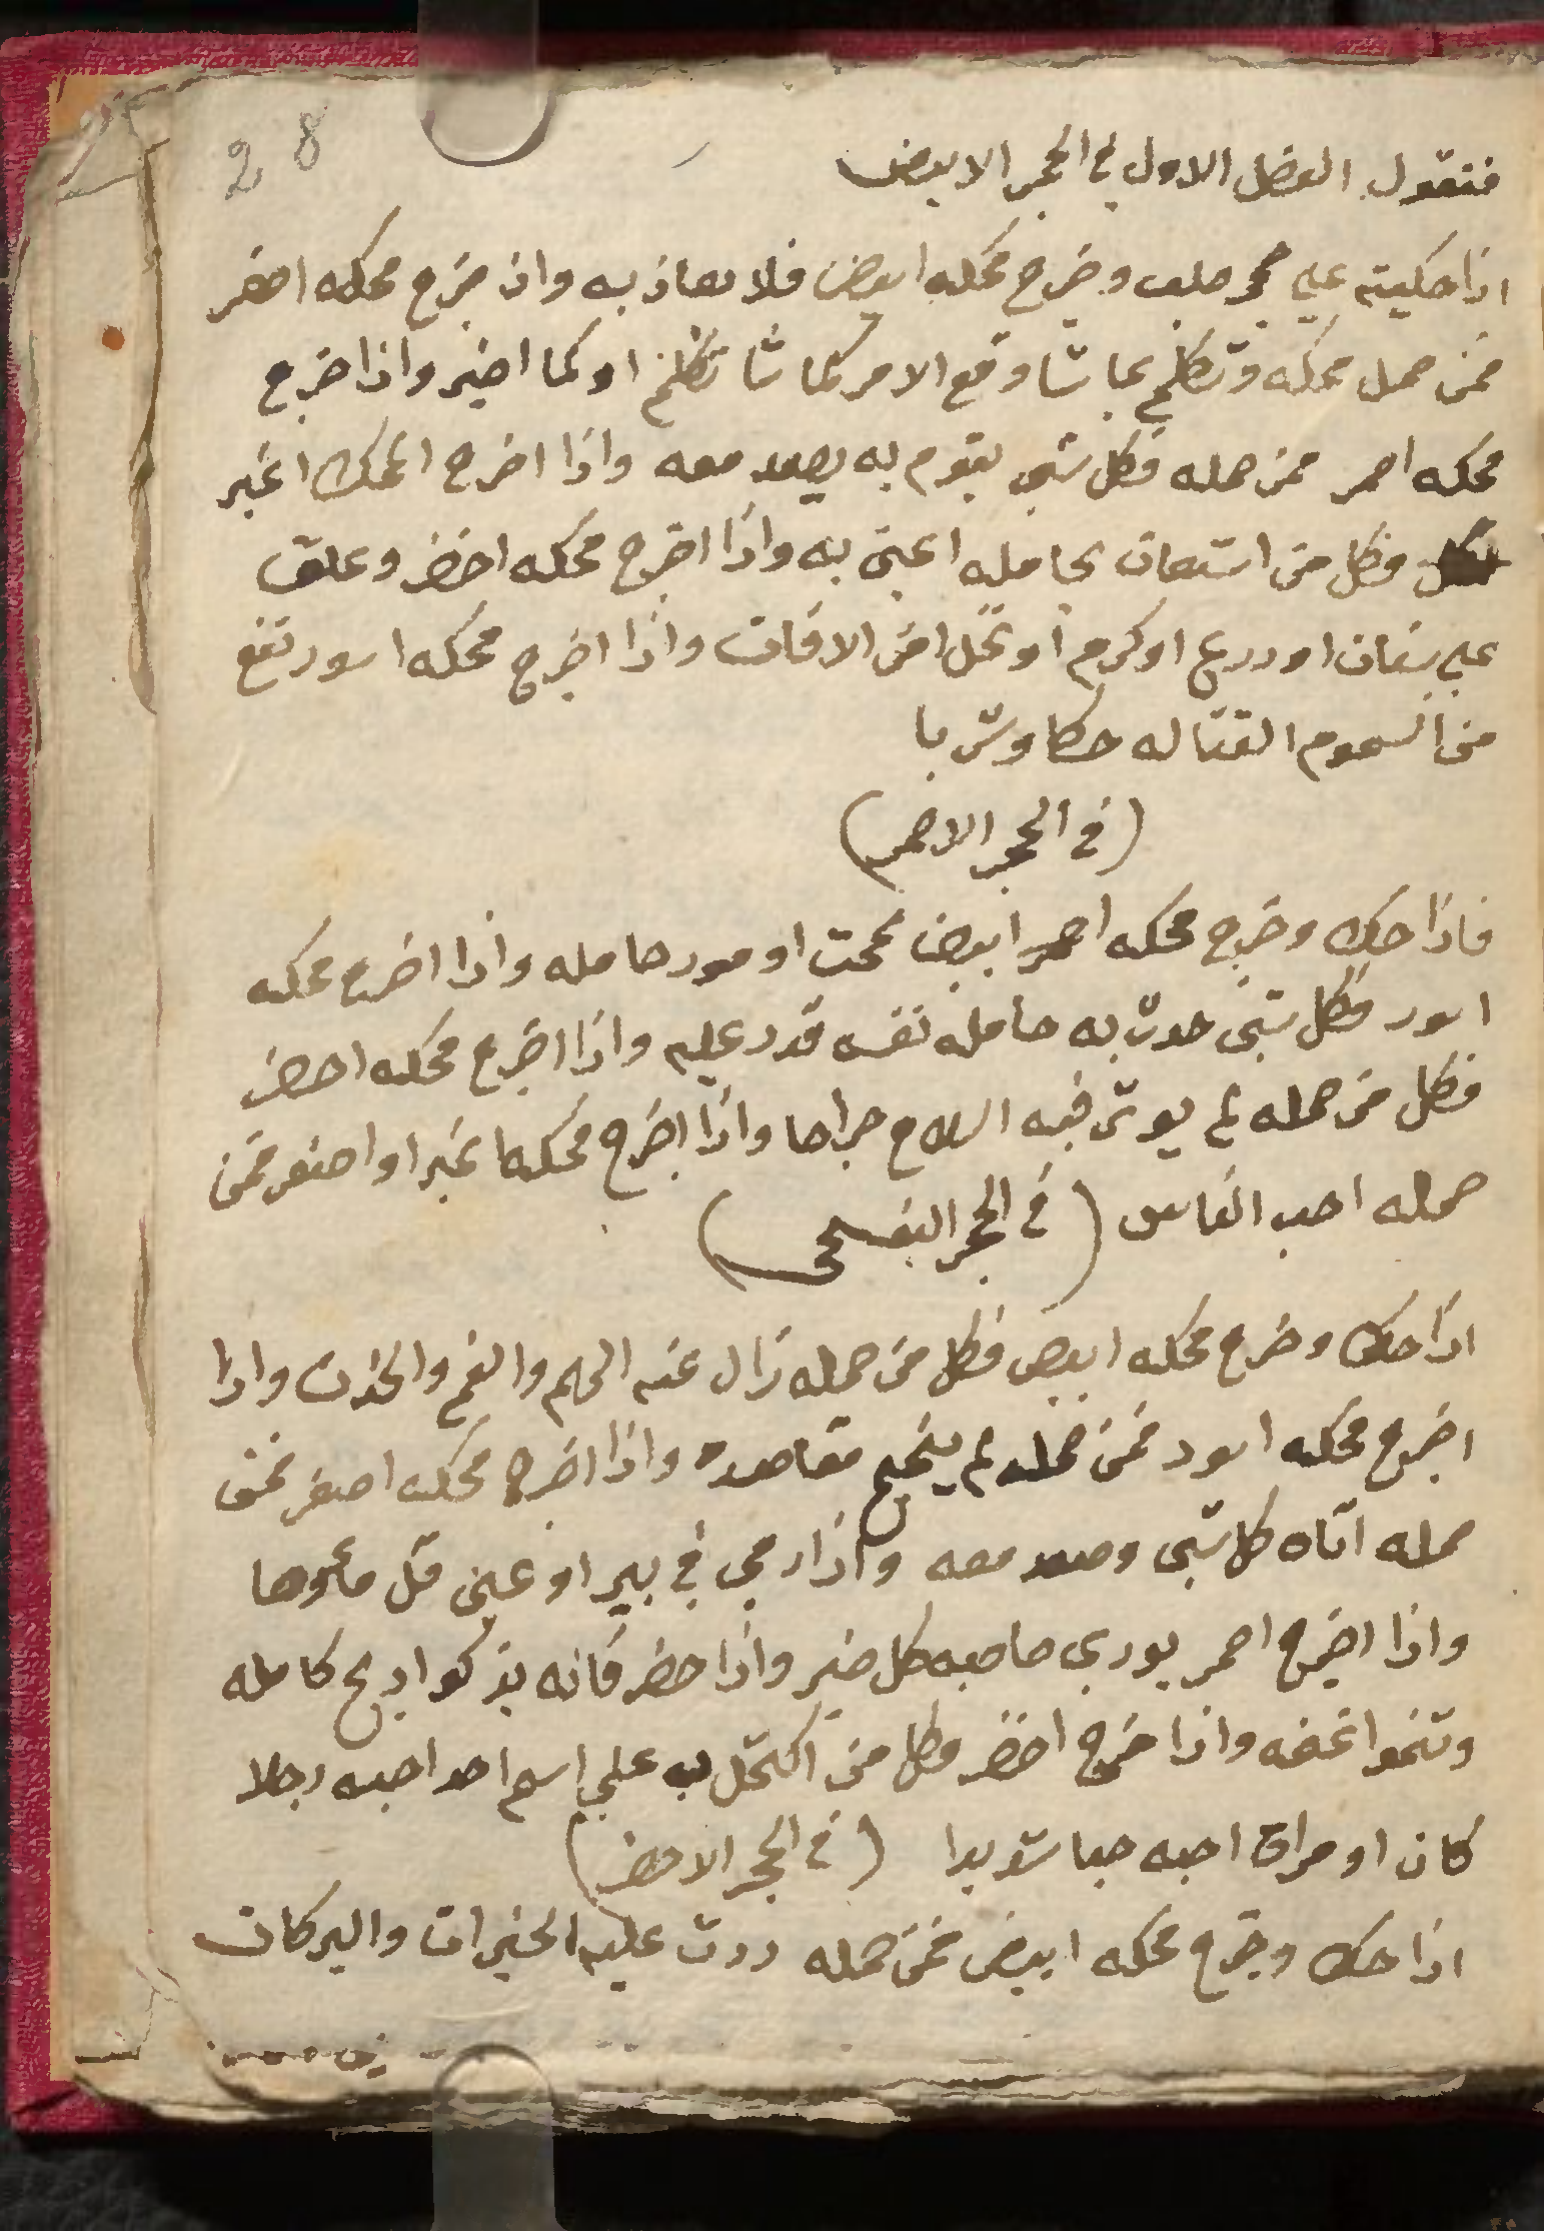 28
فنقول الفصل الاول في الحجر الابيض
اذا حكيته علي حجر صلب وخرج محكه ابيض فلا يعاذ به واذ خرج محكه اصفر
فمن حمل محكه وتكلم بما شا وقع الامر كما شا تكلم او كما اخبر واذا خرج
محكه احمر فمن حمله فكل شي يقوم به يصعد معه واذا اخرج المحك اغبر
فكل من استعان بحامله اعين به واذا اخرج محكه اخضر وعلق
علي بستان او زرع او كرم او نخل امن الافات واذا اخرج محكه اسود نفع
من السموم القتاله حكا وشربا
(في الحجر الاحمر)
فاذا حك وخرج محكه احمر ابيض نجحت امور حامله واذا اخرج محكه
اسود فكل شي حدث به حامله نفسه قدر عليه واذا اخرج محكه اخضر
فكل من حمله لم يوثر فيه السلاح جراحا واذا اخرج محكه اغبر او اصفر فمن
حمله احب الناس (في الحجر البنفسجي)
اذا حك وخرج محكه ابيض فكل من حمله زال عنه الهم والغم والحزن واذا
اخرج محكه اسود فمن حمله لم ينجح مقاصده واذا اخرج محكه اصفر فمن
حمله اتاه كل شي وصعد معه واذا رمي في بير او عين قل ماءوها
واذا اخرج احمر يوري صاحبه كل خير واذا حضر فانه يزكوا كامله
وتنموا واذا خرج اخضر وكل من اكتحل به علي اسم احد احبه رجلا
كان او مراة احبه حبا شديدا (في الحجر الاخضر)
اذا حك وخرج محكه ابيض فمن حمله درت عليه الخيرات والبركات